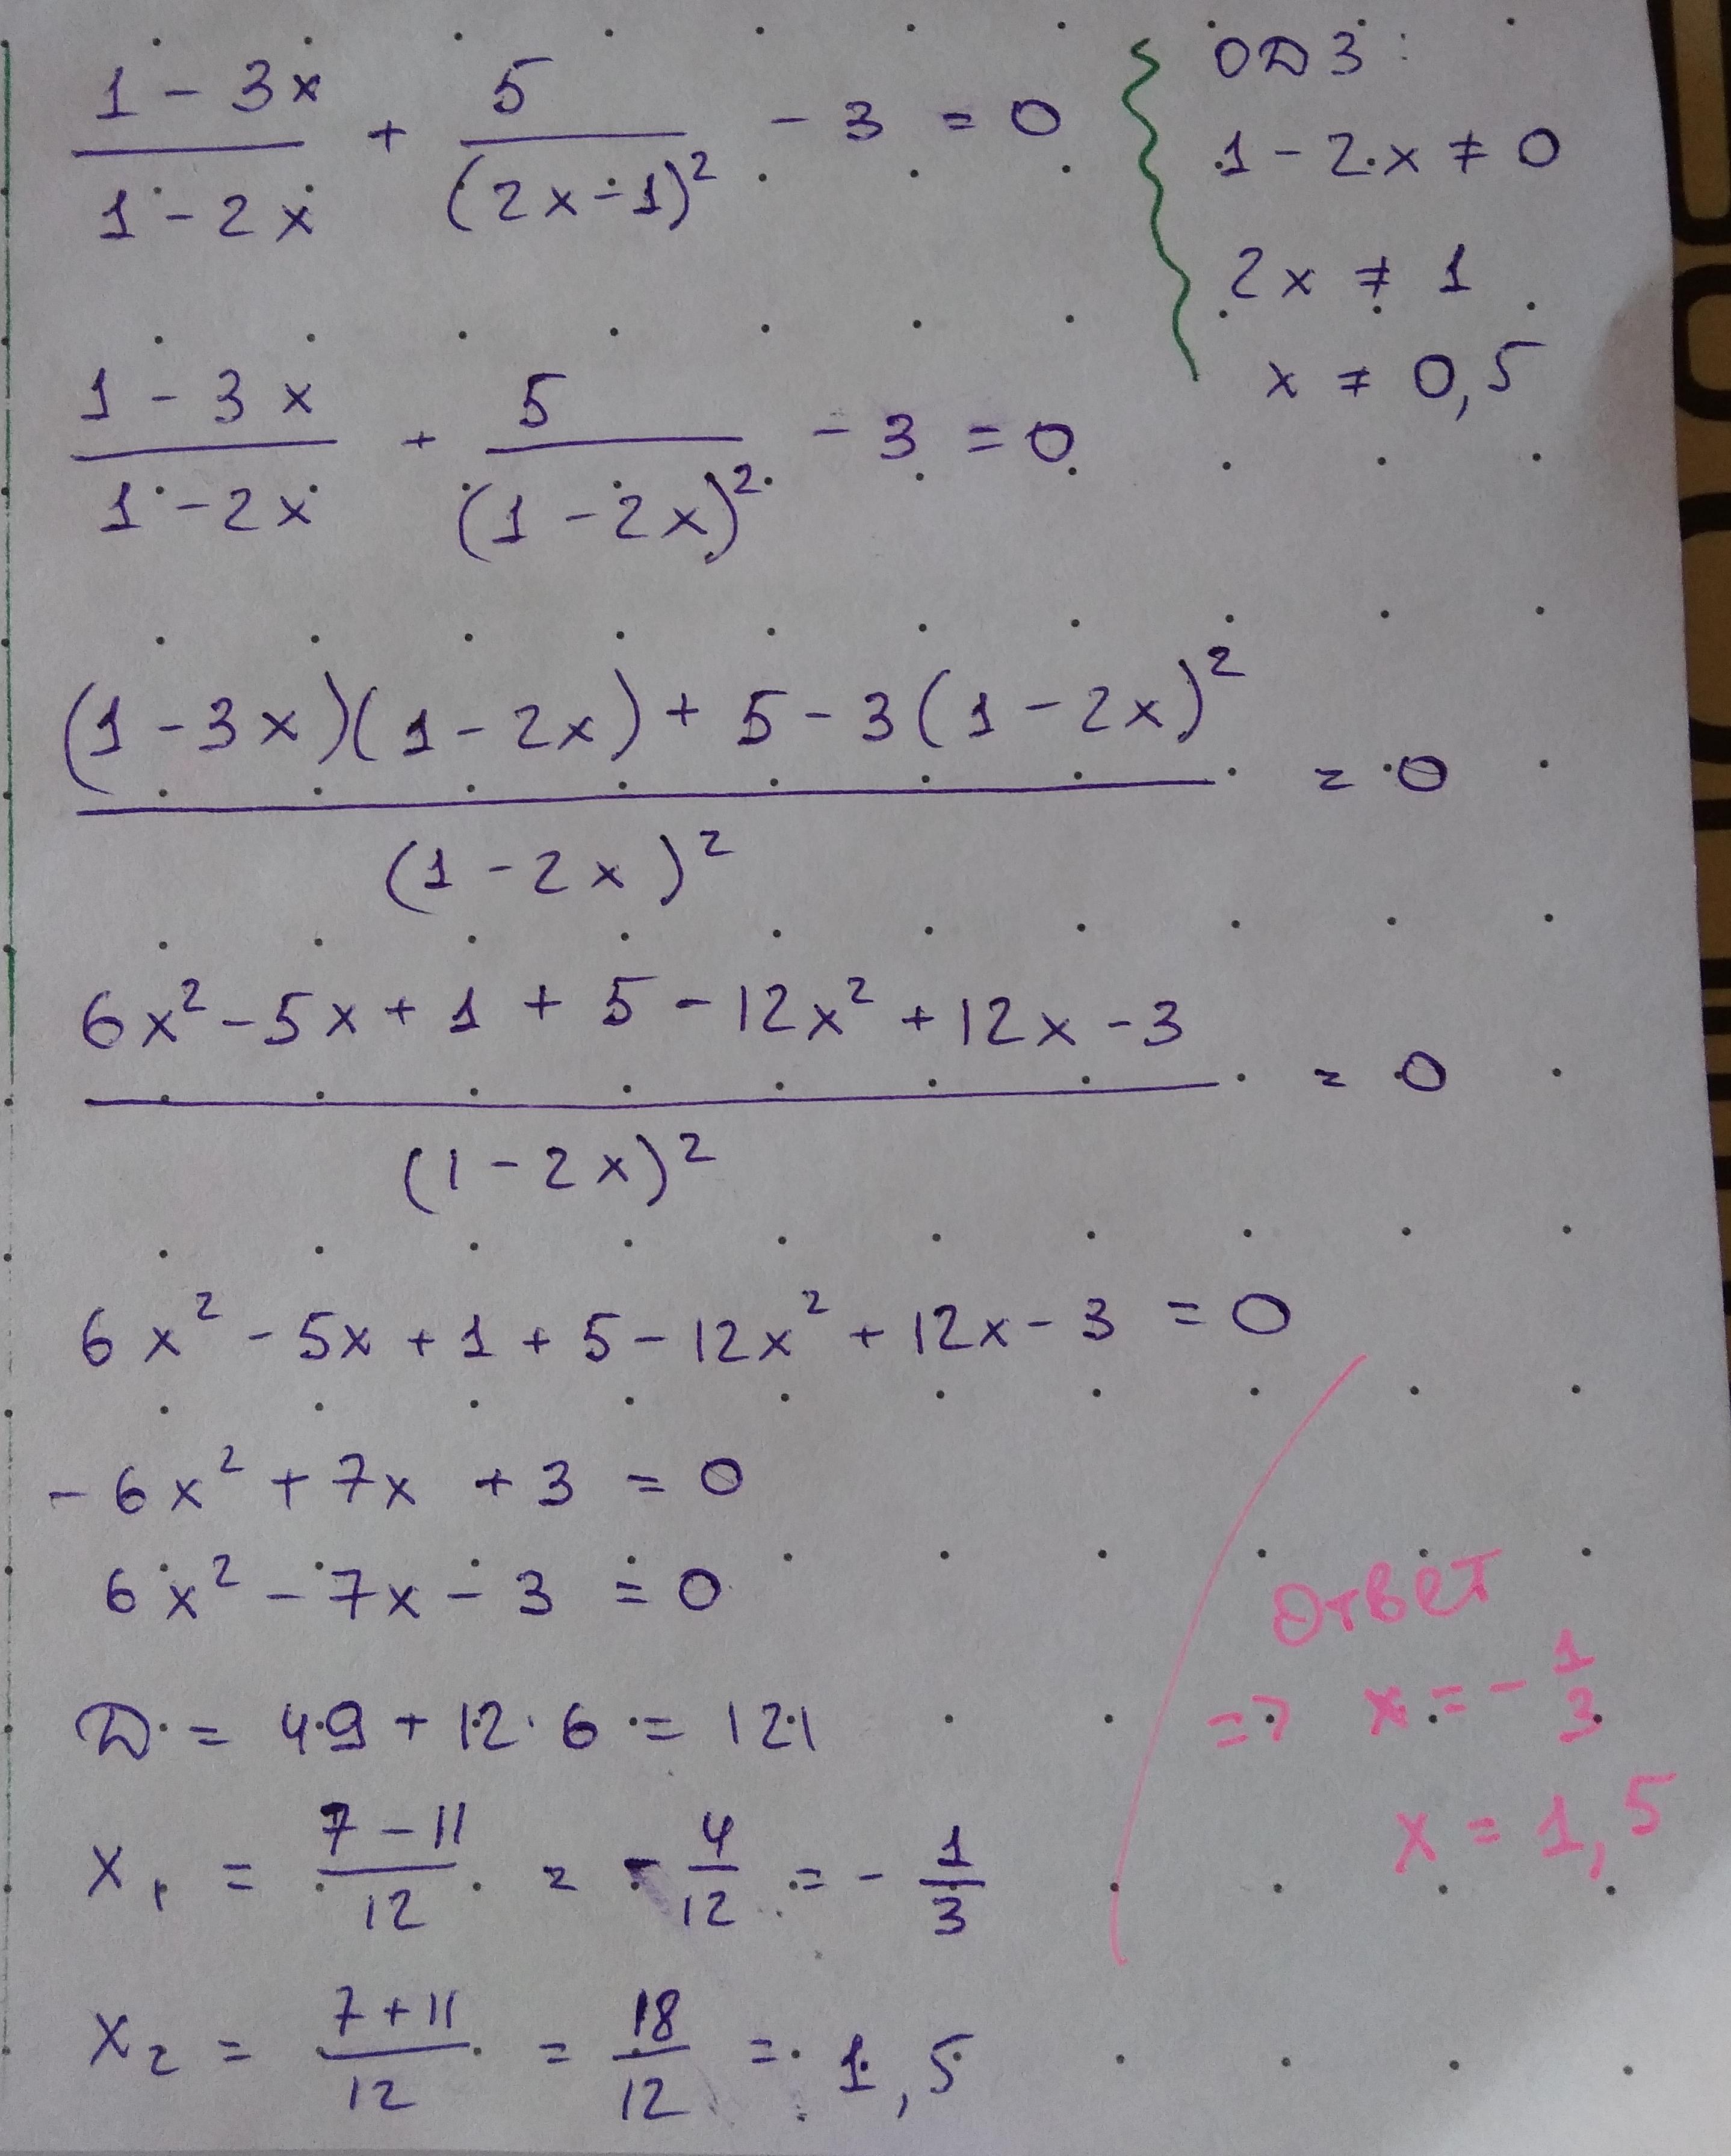 (1 - 3x)/(1 - 2x) + 5/(2x - 1)² - 3 = 0
ОДЗ:
1 - 2x ≠ 0
2x ≠ 1
x ≠ 0,5
(1 - 3x)/(1 - 2x) + 5/(1 - 2x)² - 3 = 0
((1 - 3x)(1 - 2x) + 5 - 3(1 - 2x)²)/(1 - 2x)² = 0
(6x² - 5x + 1 + 5 - 12x² + 12x - 3)/(1 - 2x)² = 0
6x² - 5x + 1 + 5 - 12x² + 12x - 3 = 0
- 6x² + 7x + 3 = 0
6x² - 7x - 3 = 0
D = 49 + 12·6 = 121
x₁ = (7 - 11)/12 = - 4/12 = - 1/3
x₂ = (7 + 11)/12 = 18/12 = 1,5
Ответ
=> x = - 1/3
x = 1,5